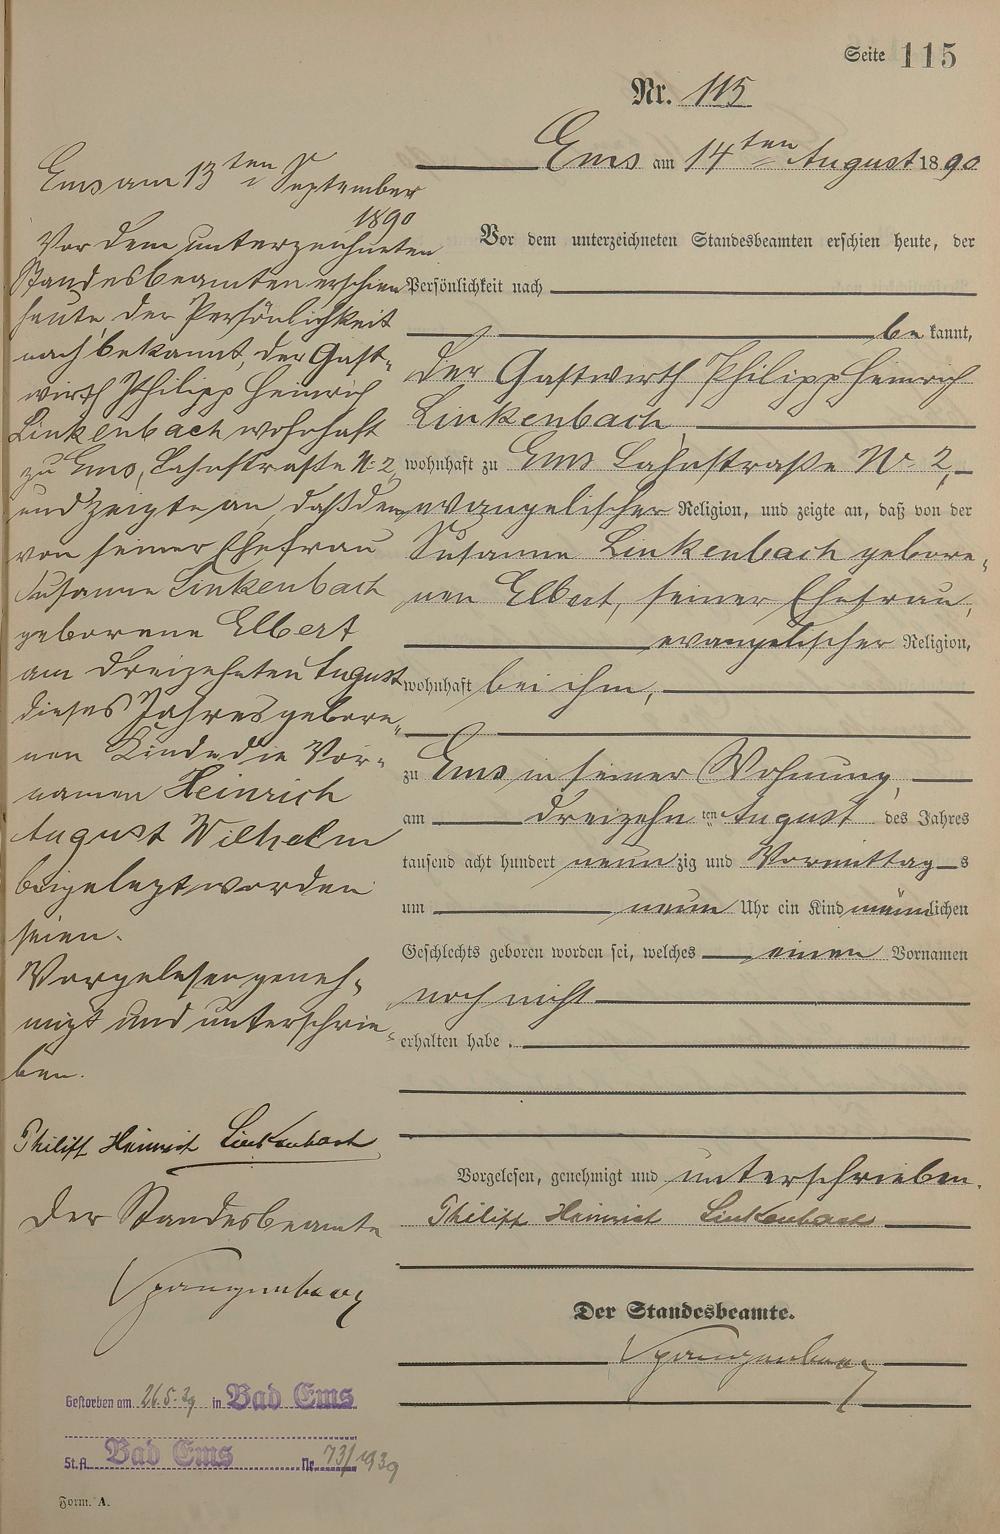 Seite 115
Nr. 115
Ems am 14ten August 1890
Vor dem unterzeichneten Standesbeamten erschien heute, der
Persönlichkeit nach
be kannt,
der Gastwirth Philipp Heinrich
Linkenbach,
wohnhaft zu Ems Lahnstraße No 2,
evangelischer Religion, und zeigte an, daß von der
Susanne Linkenbach gebore-
nen Elbert, seiner Ehefrau,
evangelischer Religion,
wohnhaft bei ihm,
zu Ems in seiner Wohnung,
am dreizehn ten August des Jahres
tausend acht hundert neun zig und Vormittag s
um neun Uhr ein Kind männlichen
Geschlechts geboren worden sei, welches einen Vornamen
noch nicht
erhalten habe.
Vorgelesen, genehmigt und unterschrieben.
Philipp Heinrich Linkenbach
Der Standesbeamte.
Spangenberg
Ems am 13ten September
1890
Vor dem unterzeichneten
Standesbeamten erschien
heute, der Persönlichkeit
nach bekannt, der Gast-
wirth Philipp Heinrich
Linkenbach wohnhaft
zu Ems, Lahnstraße No 2,
und zeigte an, daß dem
von seiner Ehefrau
Susanne Linkenbach
geborene Elbert
am dreizehnten August
dieses Jahres gebore-
nen Kinde die Vor-
namen Heinrich
August Wilhelm
beigelegt worden
seien.
Vorgelesen geneh-
migt und unterschrie-
ben.
Philipp Heinrich Linkenbach
Der Standesbeamte
Spangenberg
Gestorben am 26.5.39 in Bad Ems
St.A. Bad Ems Nr. 73/1939
Form. A.